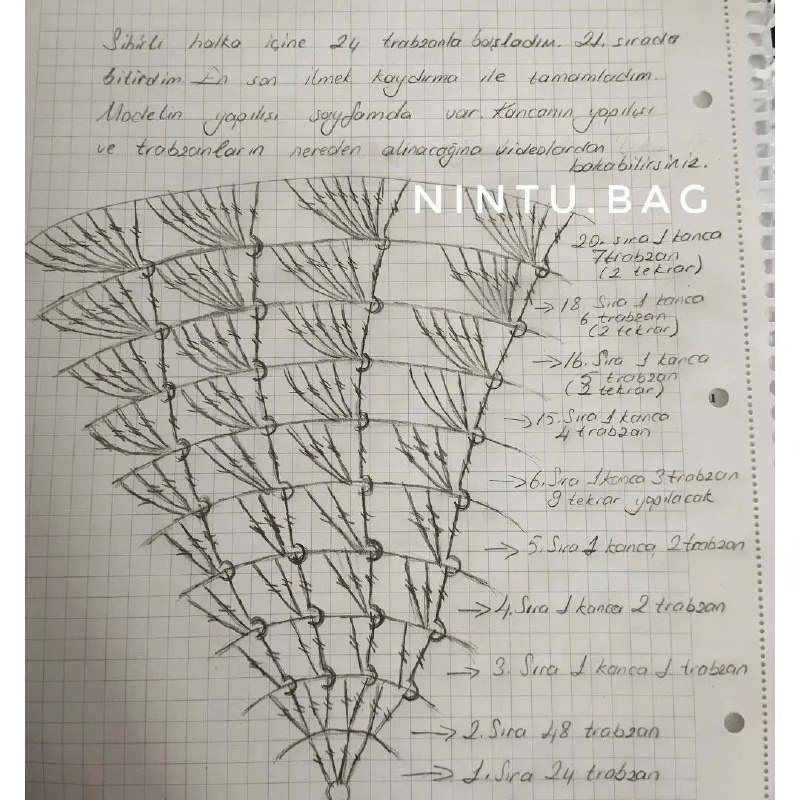 Sihirli halka içine 24 trabzanla başladım. 21. sırada
bitirdim. En son ilmek kaydırma ile tamamladım.
Modelin yapılışı sayfamda var. Kancanın yapılışı
ve trabzanların nereden alınacağına videolardan
bakabilirsiniz.
NINTU.BAG
20. sıra 1 kanca
7 trabzan
(2 tekrar)
→ 18 Sıra 1 kanca
6 trabzan
(2 tekrar)
→ 16. Sıra 1 kanca
5 trabzan
(2 tekrar)
→ 15. Sıra 1 kanca
4 trabzan
→ 6. Sıra 1 kanca 3 trabzan
9 tekrar yapılacak
→ 5. Sıra 1 kanca 2 trabzan
→ 4. Sıra 1 kanca 2 trabzan
→ 3. Sıra 1 kanca 1. trabzan
→ 2. Sıra 48 trabzan
→ 1. Sıra 24 trabzan